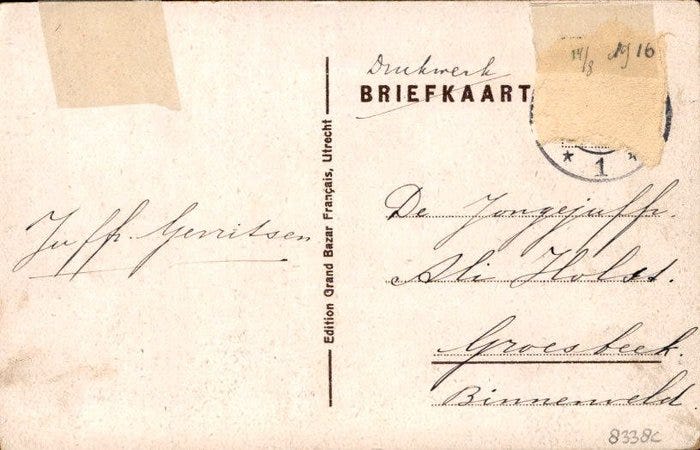 14/8 1916
Drukwerk
BRIEFKAART
* 1 *
Juffr. Gerritsen
Edition Grand Bazar Français, Utrecht
De Jongejuffr.
Ali Holst.
Groesbeek.
Binnenveld
8338c